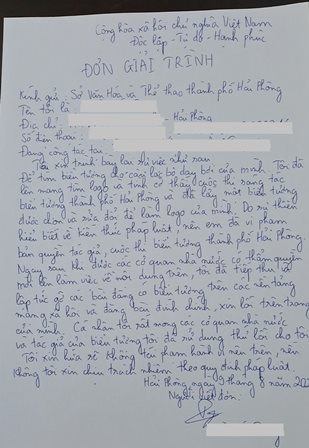 Cộng hòa xã hội chủ nghĩa Việt Nam
Độc lập - Tự do - Hạnh phúc
ĐƠN GIẢI TRÌNH
Kính gửi: Sở Văn Hóa và Thể thao thành phố Hải Phòng
Tên tôi là
Địa chỉ: Hải Phòng
Số điện thoại:
Đang công tác tại:
Tôi xin trình bày lại sự việc như sau:
Để tìm biểu tượng cho câu lạc bộ dạy bơi của mình. Tôi đã
lên mạng tìm logo và tình cờ thấy cuộc thi sáng tác
biểu tượng thành phố Hải Phòng và đã lấy một biểu tượng
được chọn và sửa đổi để làm logo của mình. Do sự thiếu
hiểu biết về kiến thức pháp luật, nên em đã vi phạm
bản quyền tác giả, cuộc thi biểu tượng thành phố Hải Phòng.
Ngay sau khi được các cơ quan nhà nước có thẩm quyền
mời lên làm việc về nội dung trên, tôi đã tiếp thu và
lập tức gỡ các bài đăng có biểu tượng trên các nền tảng
mạng xã hội và đăng bài đính chính, xin lỗi trên trang
của mình. Cá nhân tôi rất mong các cơ quan nhà nước
và tác giả của biểu tượng tôi đã sử dụng thứ lỗi cho tôi
Tôi xin hứa sẽ không tái phạm hành vi nêu trên, nếu
không tôi xin chịu trách nhiệm theo quy định pháp luật.
Hải Phòng, ngày 9 tháng 8 năm
Người viết đơn: